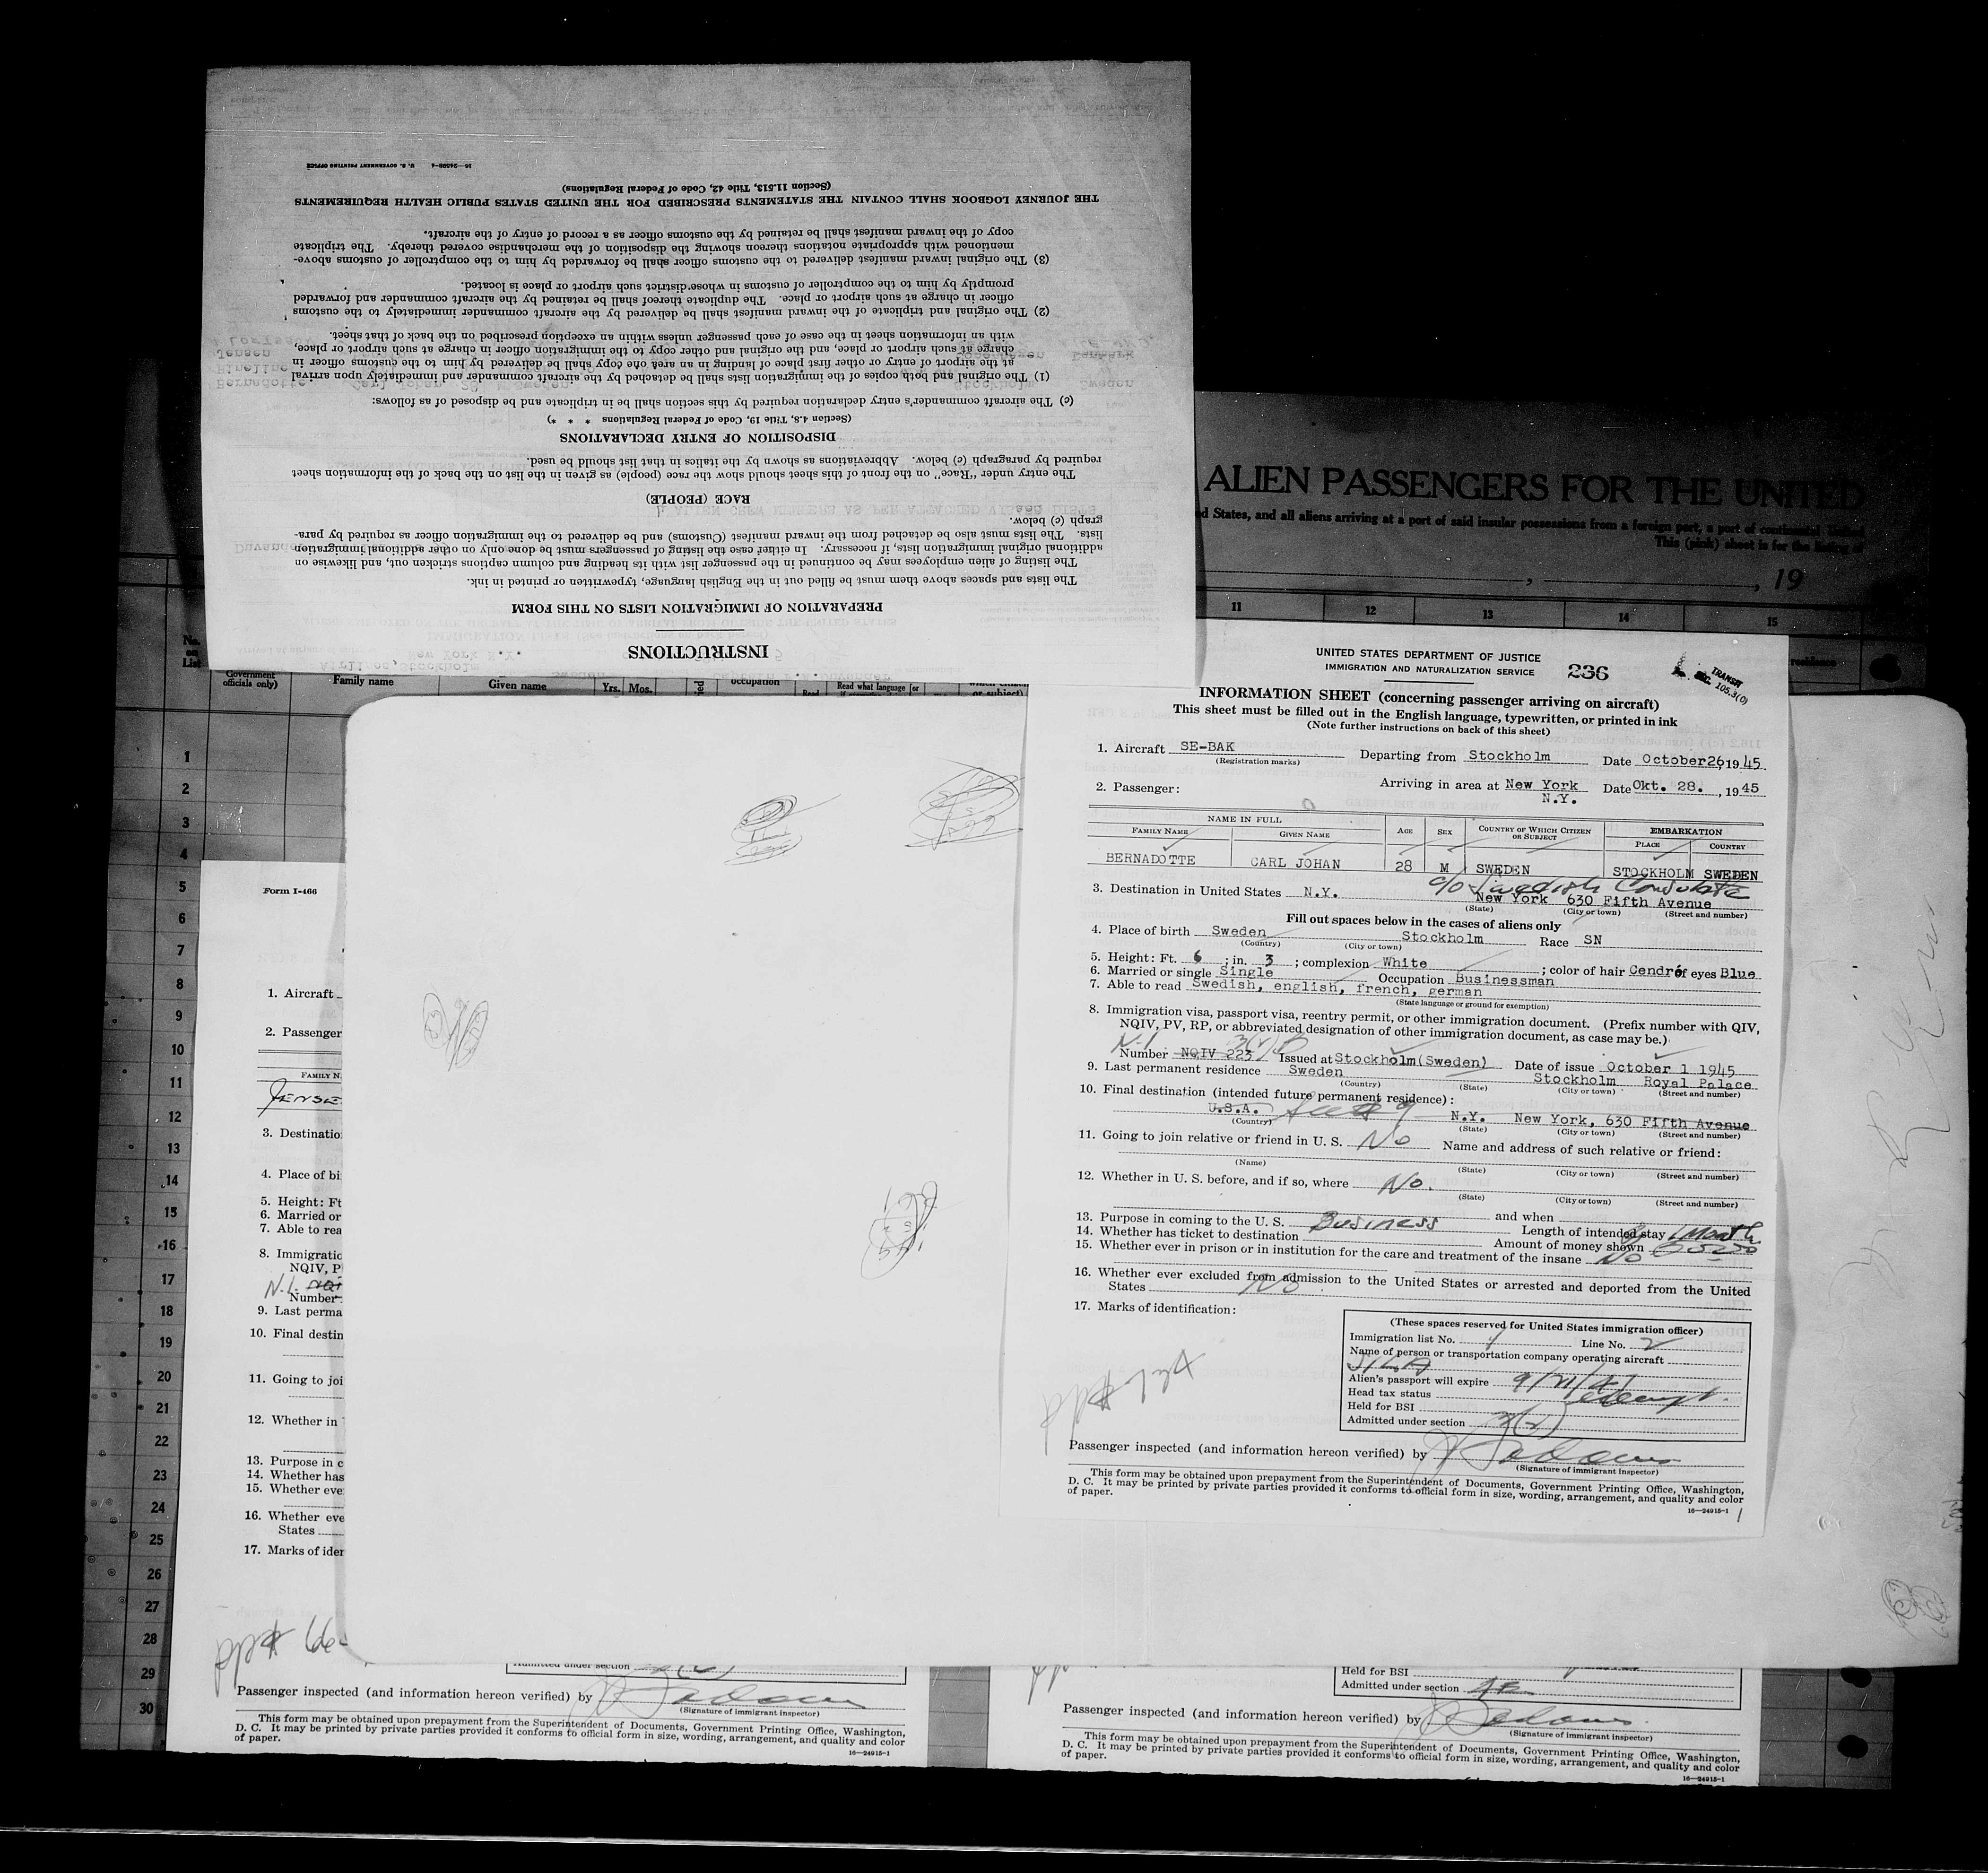 INSTRUCTIONS
PREPARATION OF IMMIGRATION LISTS ON THIS FORM
The lists and spaces above them must be filled out in the English language, typewritten or printed in ink.
The listing of alien employees may be continued in the passenger list with its heading and column captions stricken out, and likewise on
additional original immigration lists, if necessary. In either case the listing of passengers must be done only on other additional immigration
lists. The lists must also be detached from the inward manifest (Customs) and be delivered to the immigration officer as required by para-
graph (c) below.
RACE (PEOPLE)
The entry under "Race" on the front of this sheet should show the race (people) as given in the list on the back of the information sheet
required by paragraph (c) below. Abbreviations as shown by the italics in that list should be used.
DISPOSITION OF ENTRY DECLARATIONS
(Section 4.8, Title 19, Code of Federal Regulations * * *)
(c) The aircraft commander's entry declaration required by this section shall be in triplicate and be disposed of as follows:
(1) The original and both copies of the immigration lists shall be detached by the aircraft commander and immediately upon arrival
at the airport of entry or other first place of landing in an area one copy shall be delivered by him to the customs officer in
charge at such airport or place, and the original and other copy to the immigration officer in charge at such airport or place,
with an information sheet in the case of each passenger unless within an exception prescribed on the back of that sheet.
(2) The original and triplicate of the inward manifest shall be delivered by the aircraft commander immediately to the customs
officer in charge at such airport or place. The duplicate thereof shall be retained by the aircraft commander and forwarded
promptly by him to the comptroller of customs in whose district such airport or place is located.
(3) The original inward manifest delivered to the customs officer shall be forwarded by him to the comptroller of customs above-
mentioned with appropriate notations thereon showing the disposition of the merchandise covered thereby. The triplicate
copy of the inward manifest shall be retained by the customs officer as a record of entry of the aircraft.
THE JOURNEY LOGBOOK SHALL CONTAIN THE STATEMENTS PRESCRIBED FOR THE UNITED STATES PUBLIC HEALTH REQUIREMENTS
(Section 11.513, Title 42, Code of Federal Regulations)
16—24898-4 U. S. GOVERNMENT PRINTING OFFICE
ALIEN PASSENGERS FOR THE UNITED
d States, and all aliens arriving at a port of said insular possessions from a foreign port, a port of continental United
This (pink) sheet is for the listing of
, 19
11 12 13 14 15
No. on List
Government officials only)
Family name Given name Yrs. Mos. occupation Read Read what language [or
1
2
3
4
5
6
7
8
9
10
11
12
13
14
15
16
17
18
19
20
21
22
23
24
25
26
27
28
29
30
UNITED STATES DEPARTMENT OF JUSTICE
IMMIGRATION AND NATURALIZATION SERVICE
236
TRANSIT
SEC. 105.3(0)
INFORMATION SHEET (concerning passenger arriving on aircraft)
This sheet must be filled out in the English language, typewritten, or printed in ink
(Note further instructions on back of this sheet)
1. Aircraft SE-BAK Departing from Stockholm Date October26,1945
(Registration marks)
Arriving in area at New York N.Y. Date Okt. 28. , 1945
2. Passenger:
NAME IN FULL AGE SEX COUNTRY OF WHICH CITIZEN OR SUBJECT EMBARKATION
FAMILY NAME GIVEN NAME PLACE COUNTRY
BERNADOTTE CARL JOHAN 28 M SWEDEN STOCKHOLM SWEDEN
c/o Swedish Consulate
3. Destination in United States N.Y. New York 630 Fifth Avenue
(State) (City or town) (Street and number)
Fill out spaces below in the cases of aliens only
4. Place of birth Sweden Stockholm Race SN
(Country) (City or town)
5. Height: Ft. 6 ; in. 3 ; complexion White ; color of hair Cendré of eyes Blue
6. Married or single Single Occupation Businessman
7. Able to read Swedish, english, french, german
(State language or ground for exemption)
8. Immigration visa, passport visa, reentry permit, or other immigration document. (Prefix number with QIV,
NQIV, PV, RP, or abbreviated designation of other immigration document, as case may be.)
N.I. 3(2)
Number NQIV 223 Issued at Stockholm(Sweden) Date of issue October 1 1945
9. Last permanent residence Sweden Stockholm Royal Palace
(Country) (State) (City or town) (Street and number)
10. Final destination (intended future permanent residence):
U.S.A. N.Y. New York, 630 Fifth Avenue
(Country) (State) (City or town) (Street and number)
11. Going to join relative or friend in U. S. No Name and address of such relative or friend:
(Name) (State) (City or town) (Street and number)
12. Whether in U. S. before, and if so, where No.
(State) (City or town) (Street and number)
and when
13. Purpose in coming to the U. S. Business Length of intended stay 1 Month
14. Whether has ticket to destination Amount of money shown
15. Whether ever in prison or in institution for the care and treatment of the insane No
16. Whether ever excluded from admission to the United States or arrested and deported from the United
States No
17. Marks of identification:
(These spaces reserved for United States immigration officer)
Immigration list No. 1 Line No. 2
Name of person or transportation company operating aircraft
SILA
Alien's passport will expire
Head tax status exempt.
Held for BSI
Admitted under section 3(2)
Passenger inspected (and information hereon verified) by
(Signature of immigrant inspector)
This form may be obtained upon prepayment from the Superintendent of Documents, Government Printing Office, Washington,
D. C. It may be printed by private parties provided it conforms to official form in size, wording, arrangement, and quality and color
of paper.
16—24915-1
Form I-466
1. Aircraft
2. Passenger
FAMILY N
JENSE
3. Destinatio
4. Place of bi
5. Height: Ft
6. Married or
7. Able to rea
8. Immigratic
NQIV, P
N.I.
Number
9. Last perma
10. Final destin
11. Going to joi
12. Whether in
13. Purpose in c
14. Whether has
15. Whether eve
16. Whether eve
States
17. Marks of ider
Admitted under section
Passenger inspected (and information hereon verified) by
(Signature of immigrant inspector)
This form may be obtained upon prepayment from the Superintendent of Documents, Government Printing Office, Washington,
D. C. It may be printed by private parties provided it conforms to official form in size, wording, arrangement, and quality and color
of paper.
16—24915-1
Held for BSI
Admitted under section
Passenger inspected (and information hereon verified) by
(Signature of immigrant inspector)
This form may be obtained upon prepayment from the Superintendent of Documents, Government Printing Office, Washington,
D. C. It may be printed by private parties provided it conforms to official form in size, wording, arrangement, and quality and color
of paper.
16—24915-1